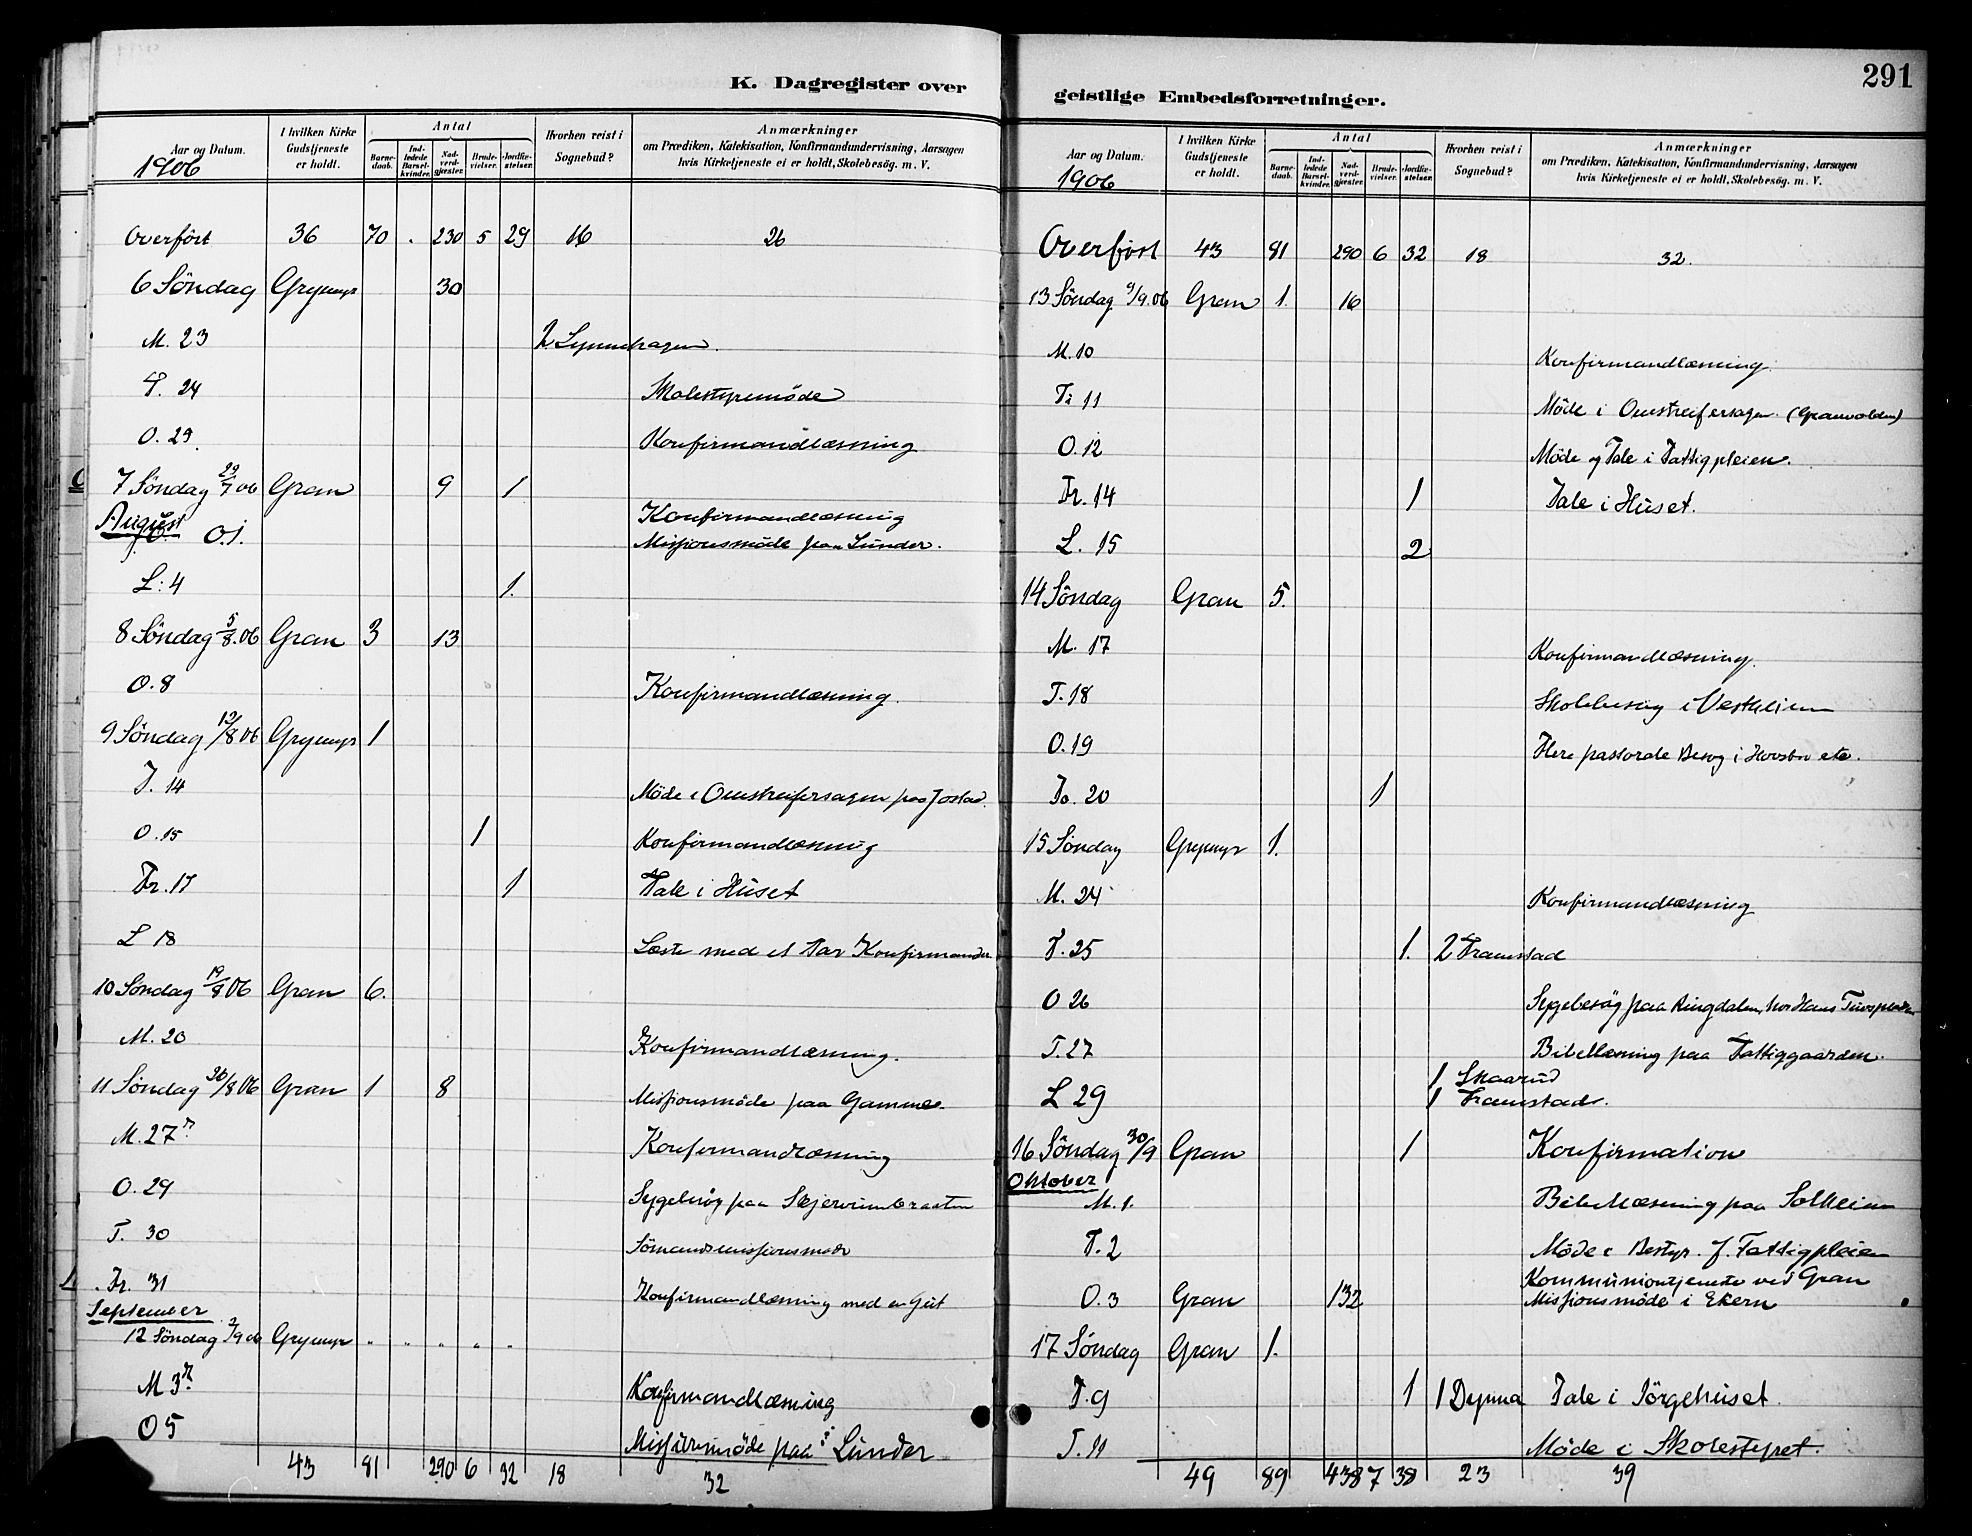 K. Dagregister over
Aar og Datum.
1906
I hvilken Kirke Gudstjeneste er holdt.
Antal
Barnedaab.
Indledede Barselkvinder.
Nadverdgjæster.
Brudevielser.
Jordfæstelser.
Hvorhen reist i Sognebud?
Anmærkninger
om Prædiken, Katekisation, Konfirmandundervisning, Aarsagen
hvis Kirketjeneste ei er holdt, Skolebesøg. m. V.
Overført 36 70 . 230 5 29 16 26
6 Söndag Grymyr 30
M. 23 2 Lynnehagen
T. 24 Skolestyremöde
O. 25. Konfirmandlæsning
7 Söndag 29/7 06 Gran 9 1
August O.1. Konfirmandlæsning
Missionsmöde paa Lunder.
L: 4 1.
8 Söndag 5/8.06 Gran 3 13
O. 8 Konfirmandlæsning.
9 Söndag 12/8 06 Grymyr 1
T. 14 Möde i Omstreifersagen paa Jostad.
O. 15 1 Konfirmandlæsning
Fr. 17 1 Tale i Huset
L 18 Læste med et Par Konfirmander
10 Söndag 19/8 06 Gran 6.
M. 20 Konfirmandlæsning.
11 Söndag 26/8 06 Gran 1 8 Missionsmöde paa Gamme.
M. 27 Konfirmandlæsning
O. 29 Sygebesög paa Skjervumbraaten
T. 30 Sömandsmissionsmöde
Fr. 31 Konfirmandlæsning med en Gut
September
12 Söndag 2/9 06 Grymyr " " " " "
M 3 Konfirmandlæsning
O 5 Missionsmöde paa Lunder
43 81 290 6 32 18 32
291
geistlige Embedsforretninger.
Aar og Datum.
1906
I hvilken Kirke Gudstjeneste er holdt.
Antal
Barnedaab.
Indledede Barselkvinder.
Nadverdgjæster.
Brudevielser.
Jordfæstelser.
Hvorhen reist i Sognebud?
Anmærkninger
om Prædiken, Katekisation, Konfirmandundervisning, Aarsagen
hvis Kirketjeneste ei er holdt, Skolebesøg. m. V.
Overført 43 81 290 6 32 18 32.
13 Söndag 9/9.06 Gran 1. 16
M. 10 Konfirmandlæsning.
Ti 11 Möde i Omstreifersagen. (Granvolden)
O. 12 Möde og Tale i Fattigpleien.
Fr. 14 1 Tale i Huset.
L. 15 2
14 Söndag Gran 5.
M. 17 Konfirmandlæsning.
T. 18 Skolebesög i Vestheim
O. 19 Flere pastorale Besög i Hovsbu etc.
To. 20 1
15 Söndag Grymyr 1.
M. 24 Konfirmandlæsning
T. 25 1. 2 Framstad
O 26 Sygebesög paa Ringdalen, hos Hans
T. 27 Bibellæsning paa Fattiggaarden.
L 29 1 Skaarud
1 Framstad.
16 Söndag 30/9 Gran 1 Konfirmation
Oktober
M. 1. Bibellæsning paa Solheim
T. 2 Möde i Bestyr. f. Fattigpleien
Kommuniontjeneste ved Gran
O. 3 Gran 132 Missionsmöde i Ekern
17 Söndag Gran 1.
T. 9 1 1 Dynna Tale i Sörgehuset.
T. 11 Möde i Skolestyret.
49 89 438 7 38 23 39